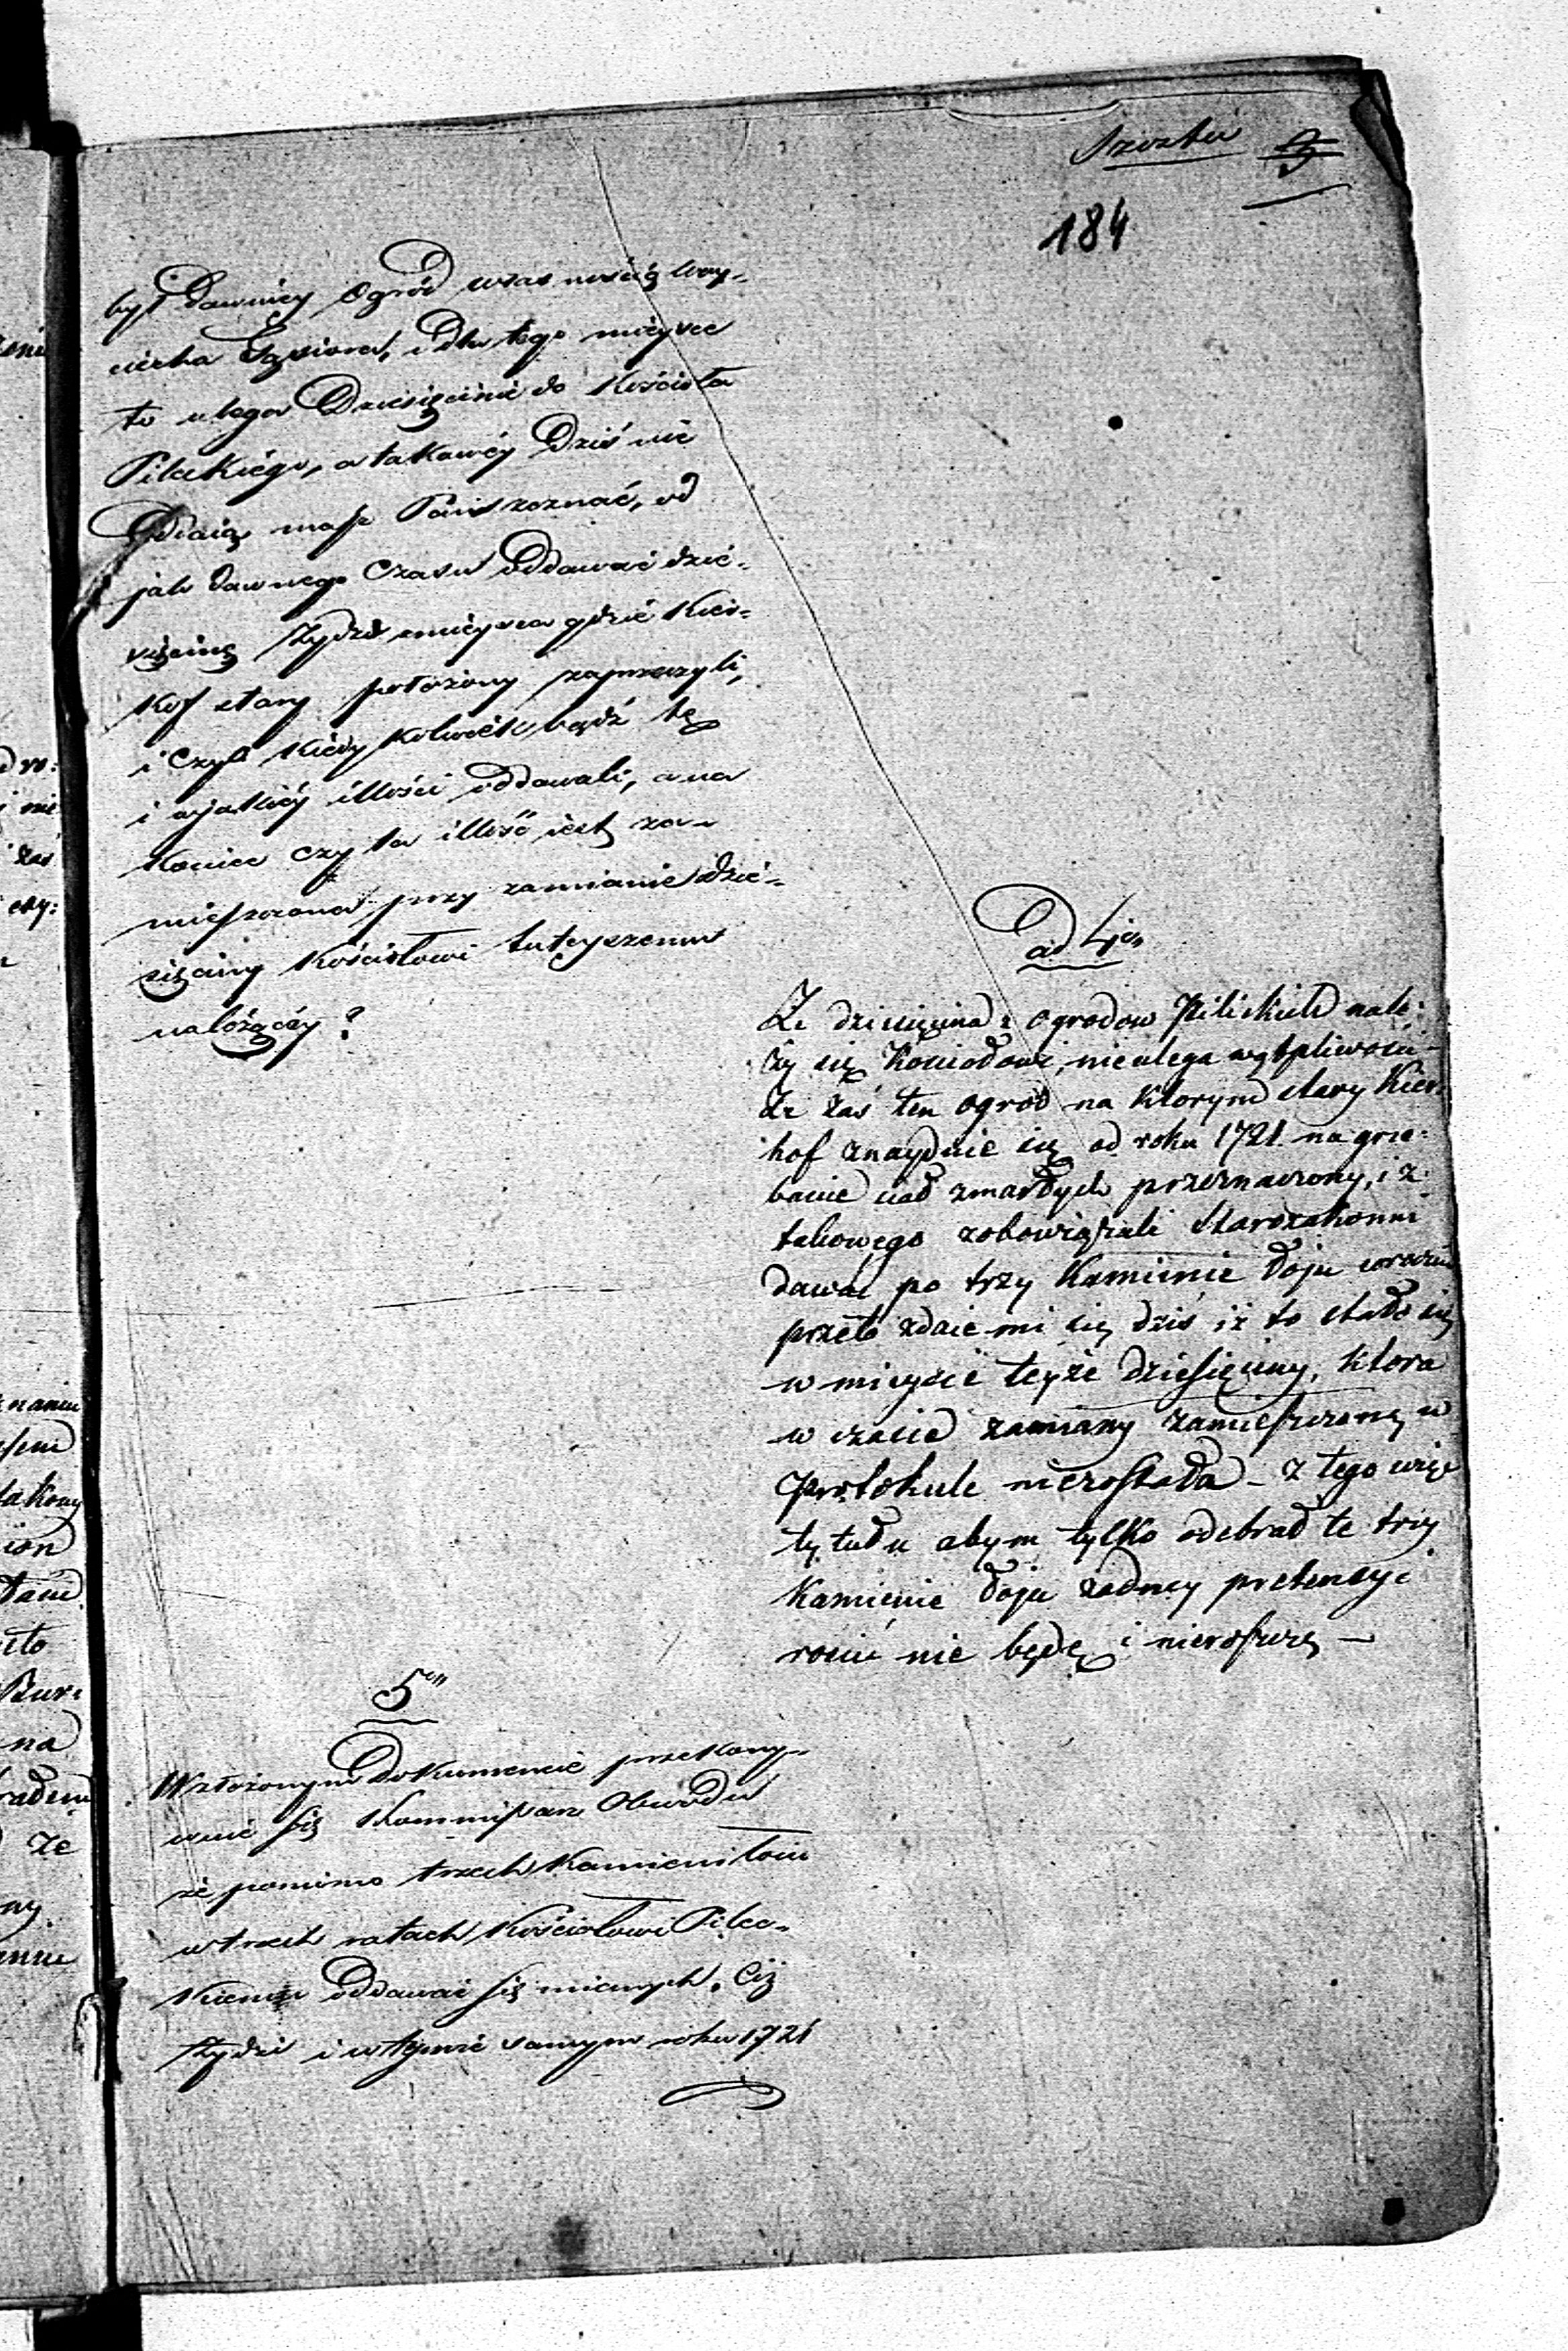 184
był dawniey Ogród własnością Woy-
ciecha Gąsiora, i dla tego mieysce
to ulega Dziesięcinie do Kościoła
Pileckiego, a takowéy Dziś nie
Oddaią, masz Pan zeznać, od
jak dawnego czasu Oddawać dzie-
sięcinę Żydzi z mieysca gdzie Kier-
kof stary położony zaprzeczyli,
i czyli kiedykolwiek bądź tę
i w jakiéy illości oddawali, a na
koniec czy ta illość iest za-
mieszczona przy zamianie dzie-
sięciny Kościołowi tuteyszemu
należącéy?
ad 4to
Że dziesięcina z ogrodow Pilickich nale:
ży się Kościołowi, nieulega wątpliwości -
Że zaś ten ogrod na ktorym stary Kier:
hof znayduie się od roku 1721 na grze:
banie ciał zmarłych przeznaczony, i z
takowego zobowiązali Starozakonni
dawać po trzy Kamienie Łoju
przeto zdaie mi się dziś iż to stało się
w mieysce teyże dziesięciny, ktora
w czasie zamiany zamieszczoną w
Protokule niezostała - z tego więc
tytułu abym tylko odebrał te trzy
Kamienie Łoju żadney pretensyi
rościć nie będę i nieroszczę —
5to
W złożonym Dokumencie przekony-
wuie się Kommissarz Obwodu
że pomimo trzech Kamieni Łoiu
w trzech ratach Kościołowi Pilec-
kiemu Oddawać się mianych, Ciż
Żydzi i w tymże samym roku 1721